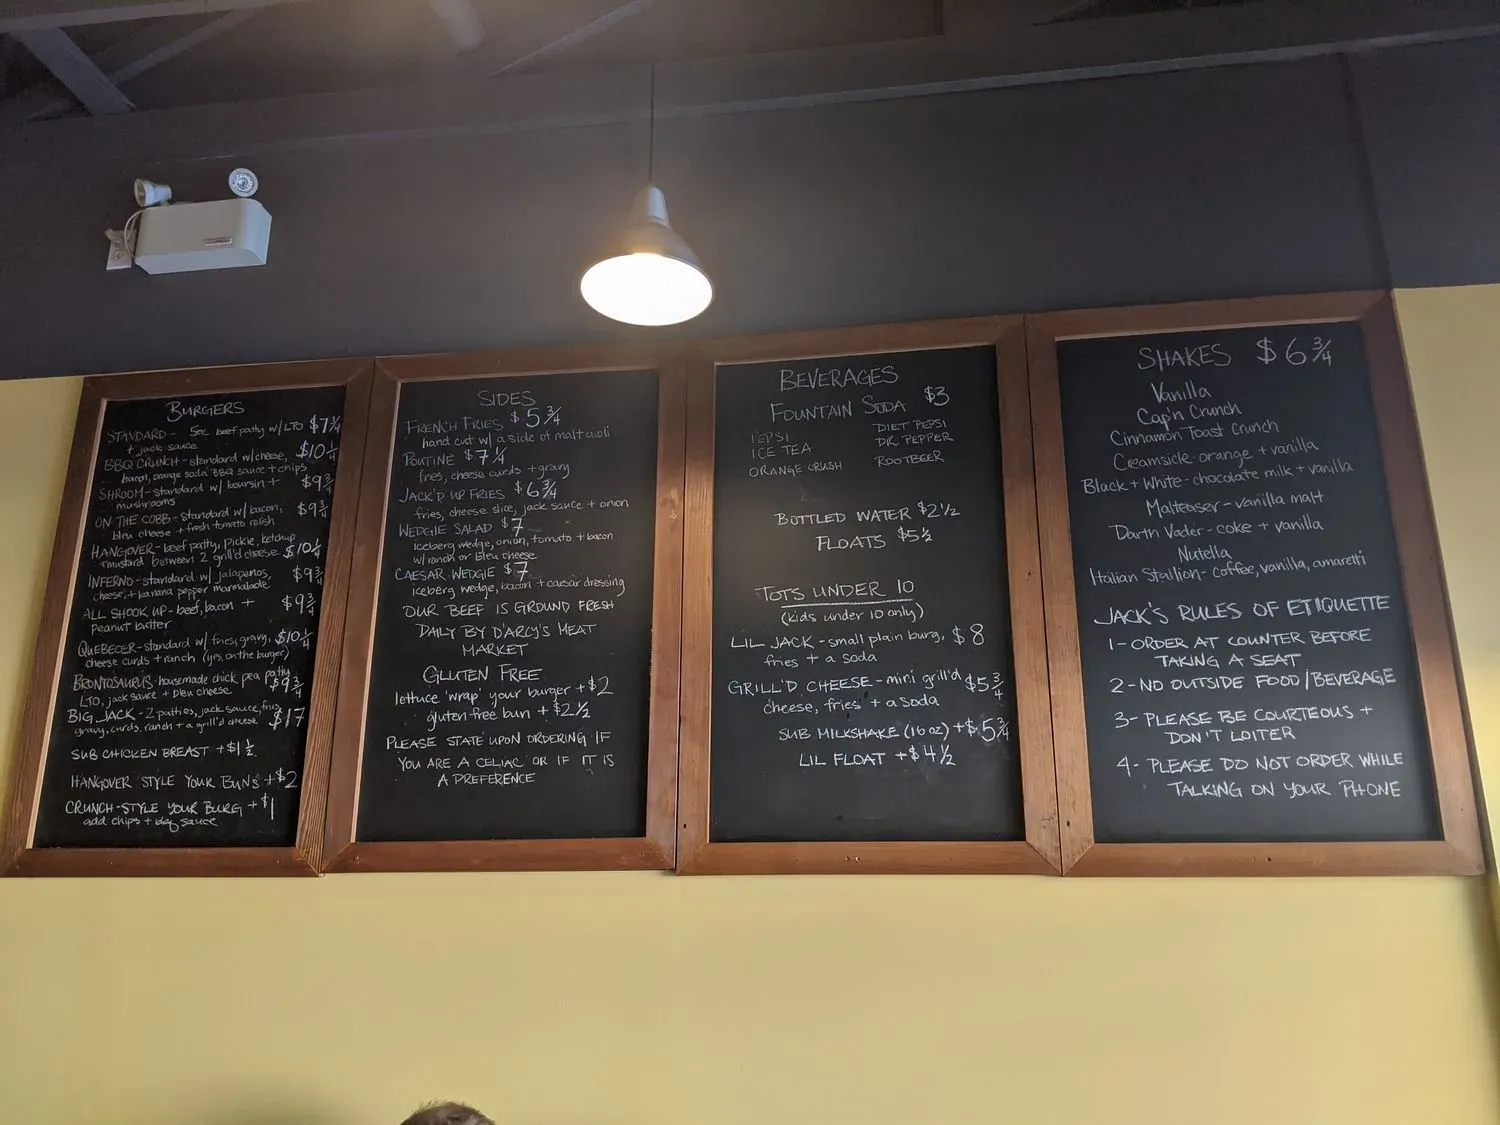 BURGERS
STANDARD - 5oz beef patty w/ LTO $7 3/4
+ jack sauce
BBQ CRUNCH - standard w/ cheese, $10 1/4
bacon, orange soda BBQ sauce + chips
SHROOM - standard w/ boursin + $9 3/4
mushrooms
ON THE COBB - standard w/ bacon, $9 3/4
bleu cheese + fresh tomato relish
HANGOVER - beef patty, pickle, ketchup
+ mustard between 2 grill'd cheese $10 1/4
INFERNO - standard w/ jalapenos, $9 3/4
cheese, + banana pepper marmalade
ALL SHOOK UP - beef, bacon + $9 3/4
peanut butter
QUEBECER - standard w/ fries, gravy, $10 1/4
cheese curds + ranch (yes, on the burger)
BRONTOSAURUS - housemade chick pea patty
LTO, jack sauce + bleu cheese $9 3/4
BIG JACK - 2 patties, jack sauce, fries
gravy, curds, ranch + a grill'd cheese $17
SUB CHICKEN BREAST + $1 1/2
HANGOVER STYLE YOUR BUNS + $2
CRUNCH-STYLE YOUR BURG + $1
add chips + bbq sauce
SIDES
FRENCH FRIES $5 3/4
hand cut w/ a side of malt aioli
POUTINE $7 1/4
fries, cheese curds + gravy
JACK'D UP FRIES $6 3/4
fries, cheese slice, jack sauce + onion
WEDGIE SALAD $7
Iceberg wedge, onion, tomato + bacon
w/ ranch or bleu cheese
CAESAR WEDGIE $7
Iceberg wedge, bacon + caesar dressing
OUR BEEF IS GROUND FRESH
DAILY BY D'ARCY'S MEAT
MARKET
GLUTEN FREE
lettuce 'wrap' your burger + $2
gluten free bun + $2 1/2
PLEASE STATE UPON ORDERING IF
YOU ARE A CELIAC OR IF IT IS
A PREFERENCE
BEVERAGES
FOUNTAIN SODA $3
PEPSI DIET PEPSI
ICE TEA DR. PEPPER
ORANGE CRUSH ROOTBEER
BOTTLED WATER $2 1/2
FLOATS $5 1/2
TOTS UNDER 10
(kids under 10 only)
LIL JACK - small plain burg, $8
fries + a soda
GRILL'D CHEESE - mini grill'd $5 3/4
cheese, fries + a soda
SUB MILKSHAKE (16 oz) + $5 3/4
LIL FLOAT + $4 1/2
SHAKES $6 3/4
Vanilla
Cap'n Crunch
Cinnamon Toast Crunch
Creamsicle - orange + vanilla
Black + White - chocolate milk + vanilla
Malteaser - vanilla malt
Darth Vader - coke + vanilla
Nutella
Italian Stallion - coffee, vanilla, amaretti
JACK'S RULES OF ETIQUETTE
1 - ORDER AT COUNTER BEFORE
TAKING A SEAT
2 - NO OUTSIDE FOOD/BEVERAGE
3 - PLEASE BE COURTEOUS +
DON'T LOITER
4 - PLEASE DO NOT ORDER WHILE
TALKING ON YOUR PHONE